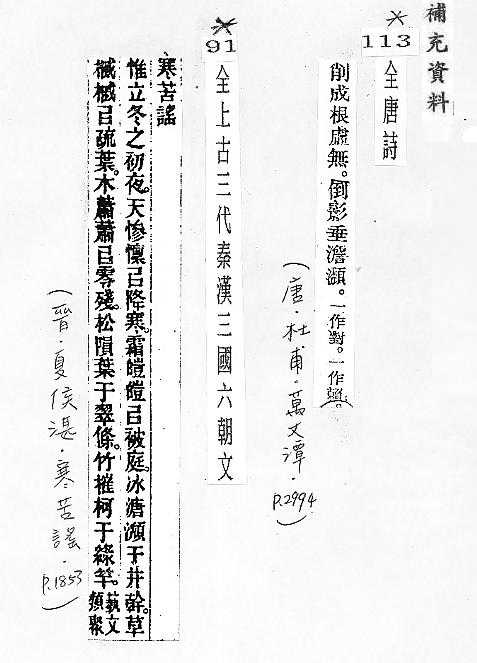 補充資料
113 全唐詩
削成根虛無。倒影垂澹瀩。一作對。一作
(唐·杜甫·萬丈潭· P.2994)
91 全上古三代秦漢三國六朝文
寒苦謠
惟立冬之初夜。天慘懍已降寒。霜皚皚已被庭。冰溏瀩于井幹。草
槭槭已疏葉。木蕭蕭已零殘。松隕葉于翠條。竹摧柯于綠竿。藝文類聚
(晉·夏侯湛·寒苦謠· P.1853)